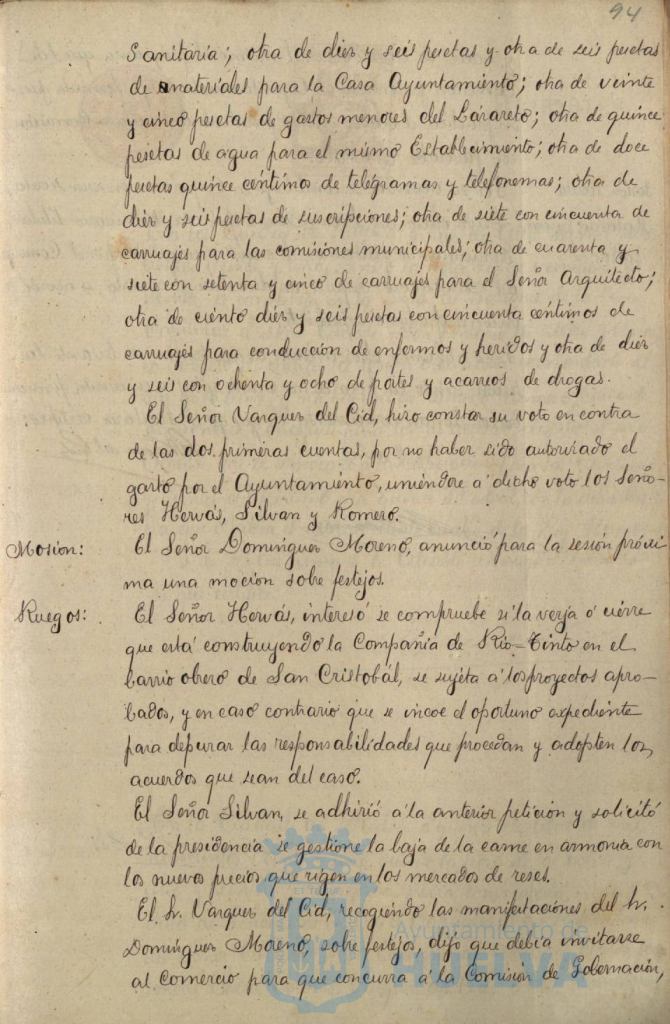 94
Sanitaria; otra de diez y seis pesetas y otra de seis pesetas
de materiales para la Casa Ayuntamiento; otra de veinte
y cinco pesetas de gastos menores del Lazareto; otra de quince
pesetas de agua para el mismo Establecimiento; otra de doce
pesetas quince céntimos de telégramas y telefonemas; otra de
diez y seis pesetas de suscripciones; otra de siete con cincuenta de
carruajes para las comisiones municipales; otra de cuarenta y
siete con setenta y cinco de carruajes para el Señor Arquitecto;
otra de ciento diez y seis pesetas con cincuenta céntimos de
carruajes para conducción de enfermos y heridos y otra de diez
y seis con ochenta y ocho de portes y acarreos de drogas.
El Señor Vazquez del Cid, hizo constar su voto en contra
de las dos primeras cuentas, por no haber sido autorizado el
gasto por el Ayuntamiento, uniéndose á dicho voto los Seño-
res Hervás, Silvan y Romero.
Mosion: El Señor Domínguez Moreno, anunció para la sesión próxi
ma una moción sobre festejos.
Ruegos: El Señor Hervás, interesó se compruebe si la verja ó cierre
que está construyendo la Compañia de Rio-Tinto en el
barrio obrero de San Cristobál, se sujeta á los proyectos apro-
bados, y en caso contrario que se incoe el oportuno expediente
para depurar las responsabilidades que procedan y adopten los
acuerdos que sean del caso.
El Señor Silvan, se adhirió á la anterior petición y solicitó
de la presidencia se gestione la baja de la carne en armonía con
los nuevos precios que rigen en los mercados de reses.
El Sr. Vazquez del Cid, recogiendo las manifestaciones del Sr.
Domínguez Moreno, sobre festejos, dijo que debía invitarse
al Comercio para que concurra á la Comisión de Gobernación,
Ayuntamiento de
HUELVA